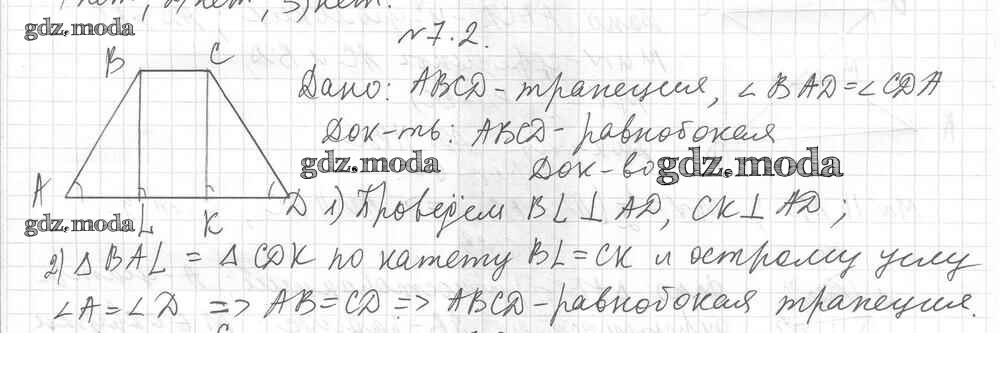 gdz.moda
№7.2.
B C
Дано: ABCD - трапеция, ∠BAD = ∠CDA
Док-ть: ABCD - равнобокая
gdz.moda
Док-во gdz.moda
A
D 1) Проведем BL ⊥ AD, CK ⊥ AD;
gdz.moda
L K
2) △ BAL = △ CDK по катету BL = CK и острому углу
∠A = ∠D => AB = CD => ABCD - равнобокая трапеция.